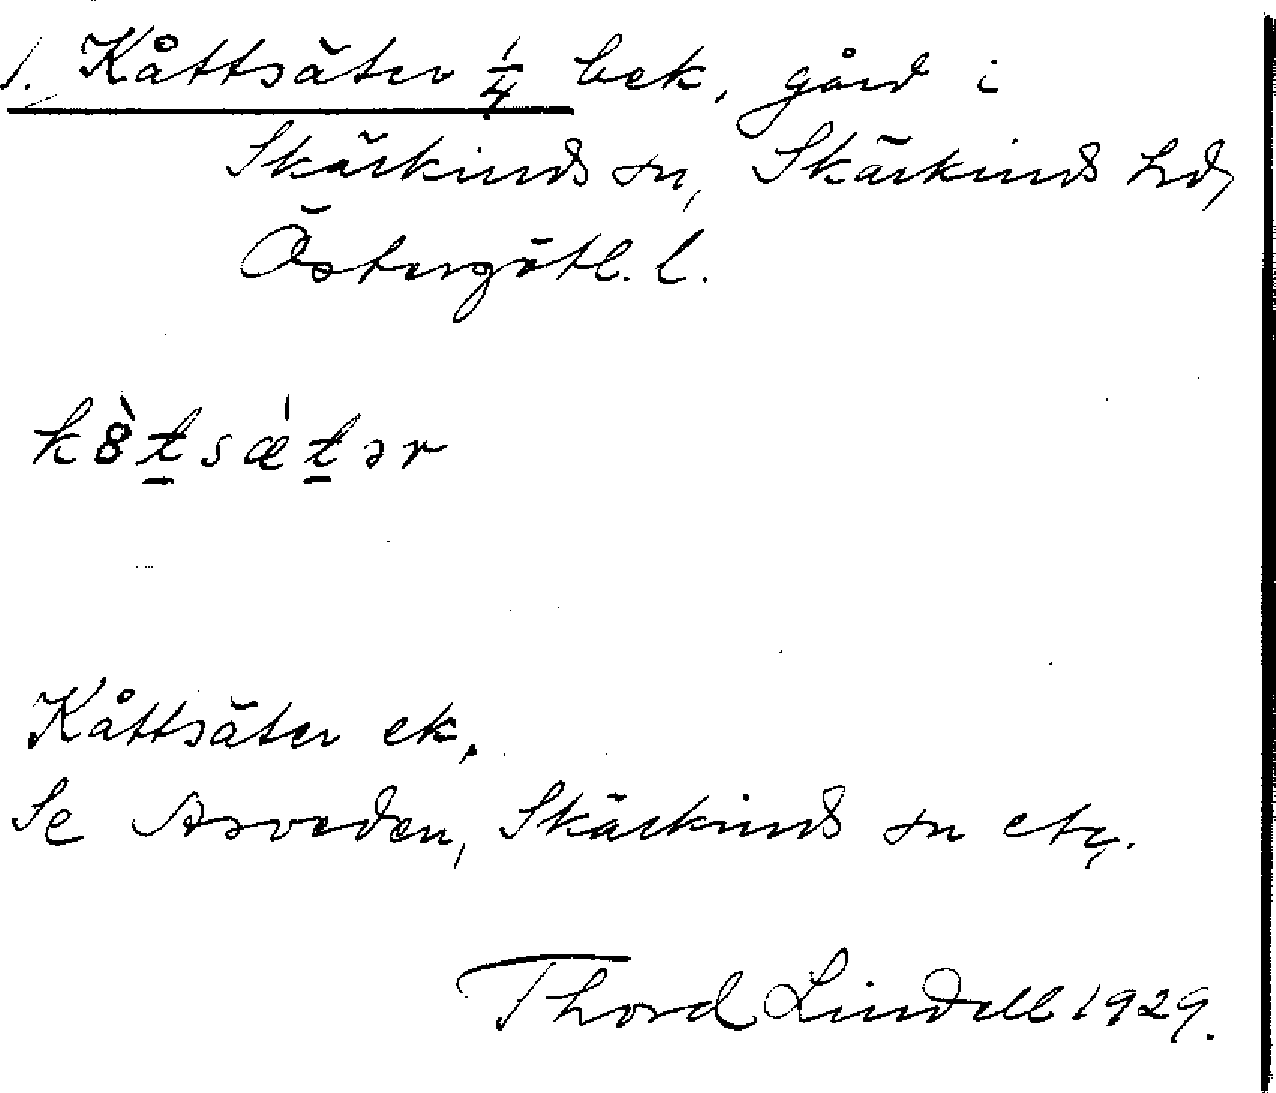 1. Kåttsäter 1/4 bek, gård i
Skärkinds sn, Skärkinds hd,
Östergötl. l.
k8̀t̠sǽt̠ər
Kåttsäter ek.
Se Asveden, Skärkinds sn ety.
Thord Lindell 1929.